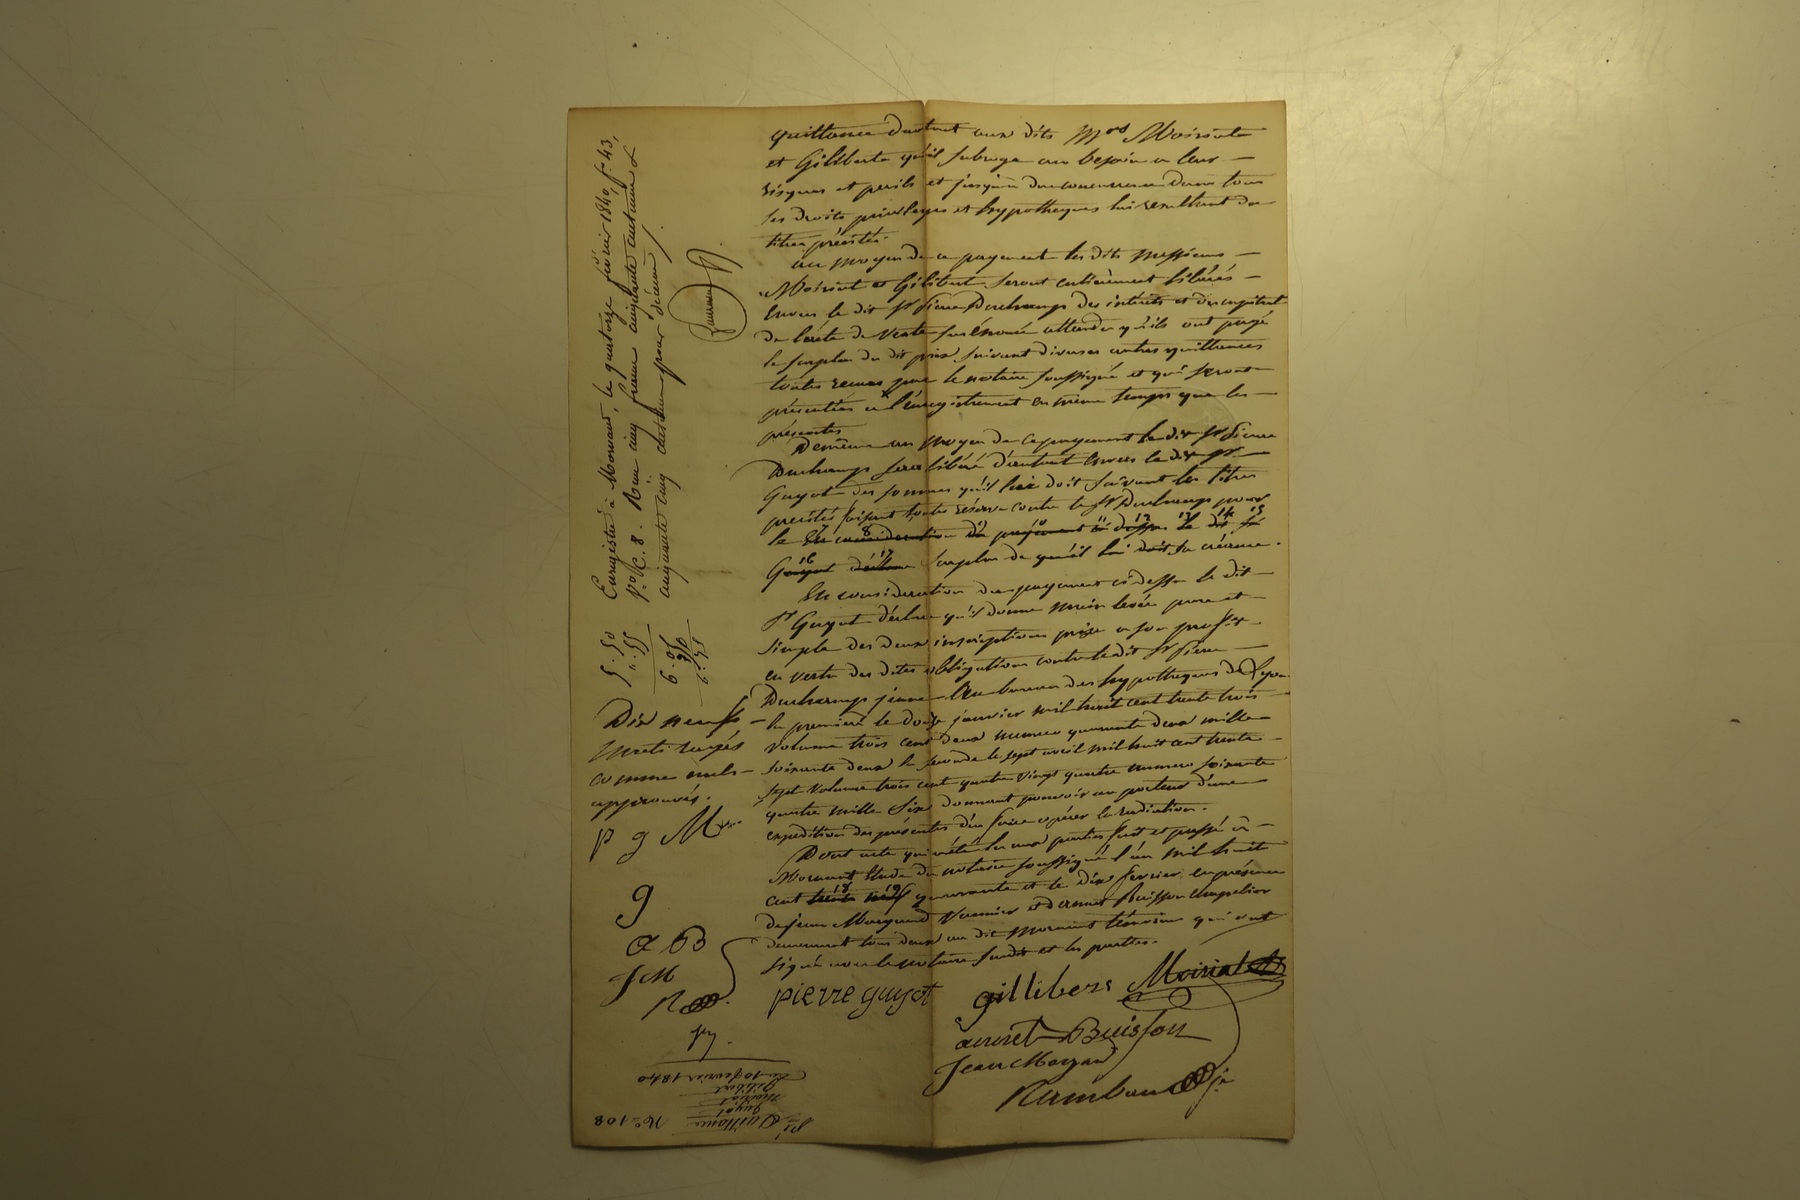 quittance d'autant aux dits Mrs Moiriat
et Gilibert qu'il subroge au besoin a leur
risques et perils et jusqu'a due concurrence dans tous
ses droits privileges et hypotheques lui resultant des
titres précités.
au moyen de ce payement les dits messieurs
Moiriat et Gilibert seront entièrement libérés
envers le dit Sr Pierre Duchamp des intérêts et du capital
de l'acte de vente sus énoncé attendu qu'ils ont payé
le surplus du dit prix suivant diverses autres quittances
toutes recues par le notaire soussigné et qui seront
présentées à l'enregistrement en même temps que les
présentes
Demême au moyen de ce payement le dit Sr Pierre
Duchamp sera libéré d'autant envers le dit Sr
Guyot des sommes qu'il lui doit suivant les titres
precités faisant toute réserve contre le Sr Duchamp pour
le En consideration du payement ci dessus le dit Sr
Guyot déclare surplus de qu'il lui doit sa créance.
En consideration du payement ci dessus le dit
Sr Guyot déclare qu'il donne main levée pure et
simple des deux inscriptions prise a son profit
en vertu des dites obligations contre le dit Sr Pierre
Duchamp jeune au bureau des hypotheques de Lyon
la premiere le douze janvier mil huit cent trente trois
volume trois cent deux numero quarante deux mille
soixante deux la seconde le sept avril mil huit cent trente
sept volume trois cent quatre vingt quatre numero soixante
quatre mille six donnant pouvoir au porteur d'une
expedition des présentes d'en faire opérer la radiation.
Dont acte qui a été lu aux parties fait et passé à
Mornant Etude du notaire soussigné l'an mil huit
cent trente neuf quarante et le dix fevrier en présence
de Jean Moyand et
demeurant tous deux au dit Mornant témoins qui ont
signé avec le notaire susdit et les parties.
pierre guyot gillibert Moiriat
Buisson
Jean Moyand
Rambaud jne
Enregistré à Mornant, le quatorze février 1840, fo 43,
vo C. 8. Reçu cinq francs cinquante centimes &
cinquante cinq centimes pour décime.
5.50
".55
6.05
Dix neuf
mots rayés
comme nuls
approuvés.
p g M
g
a B
J M
R
No 108
Quittance
Guyot
Moiriat
Gilibert
Du 10 fevrier 1840